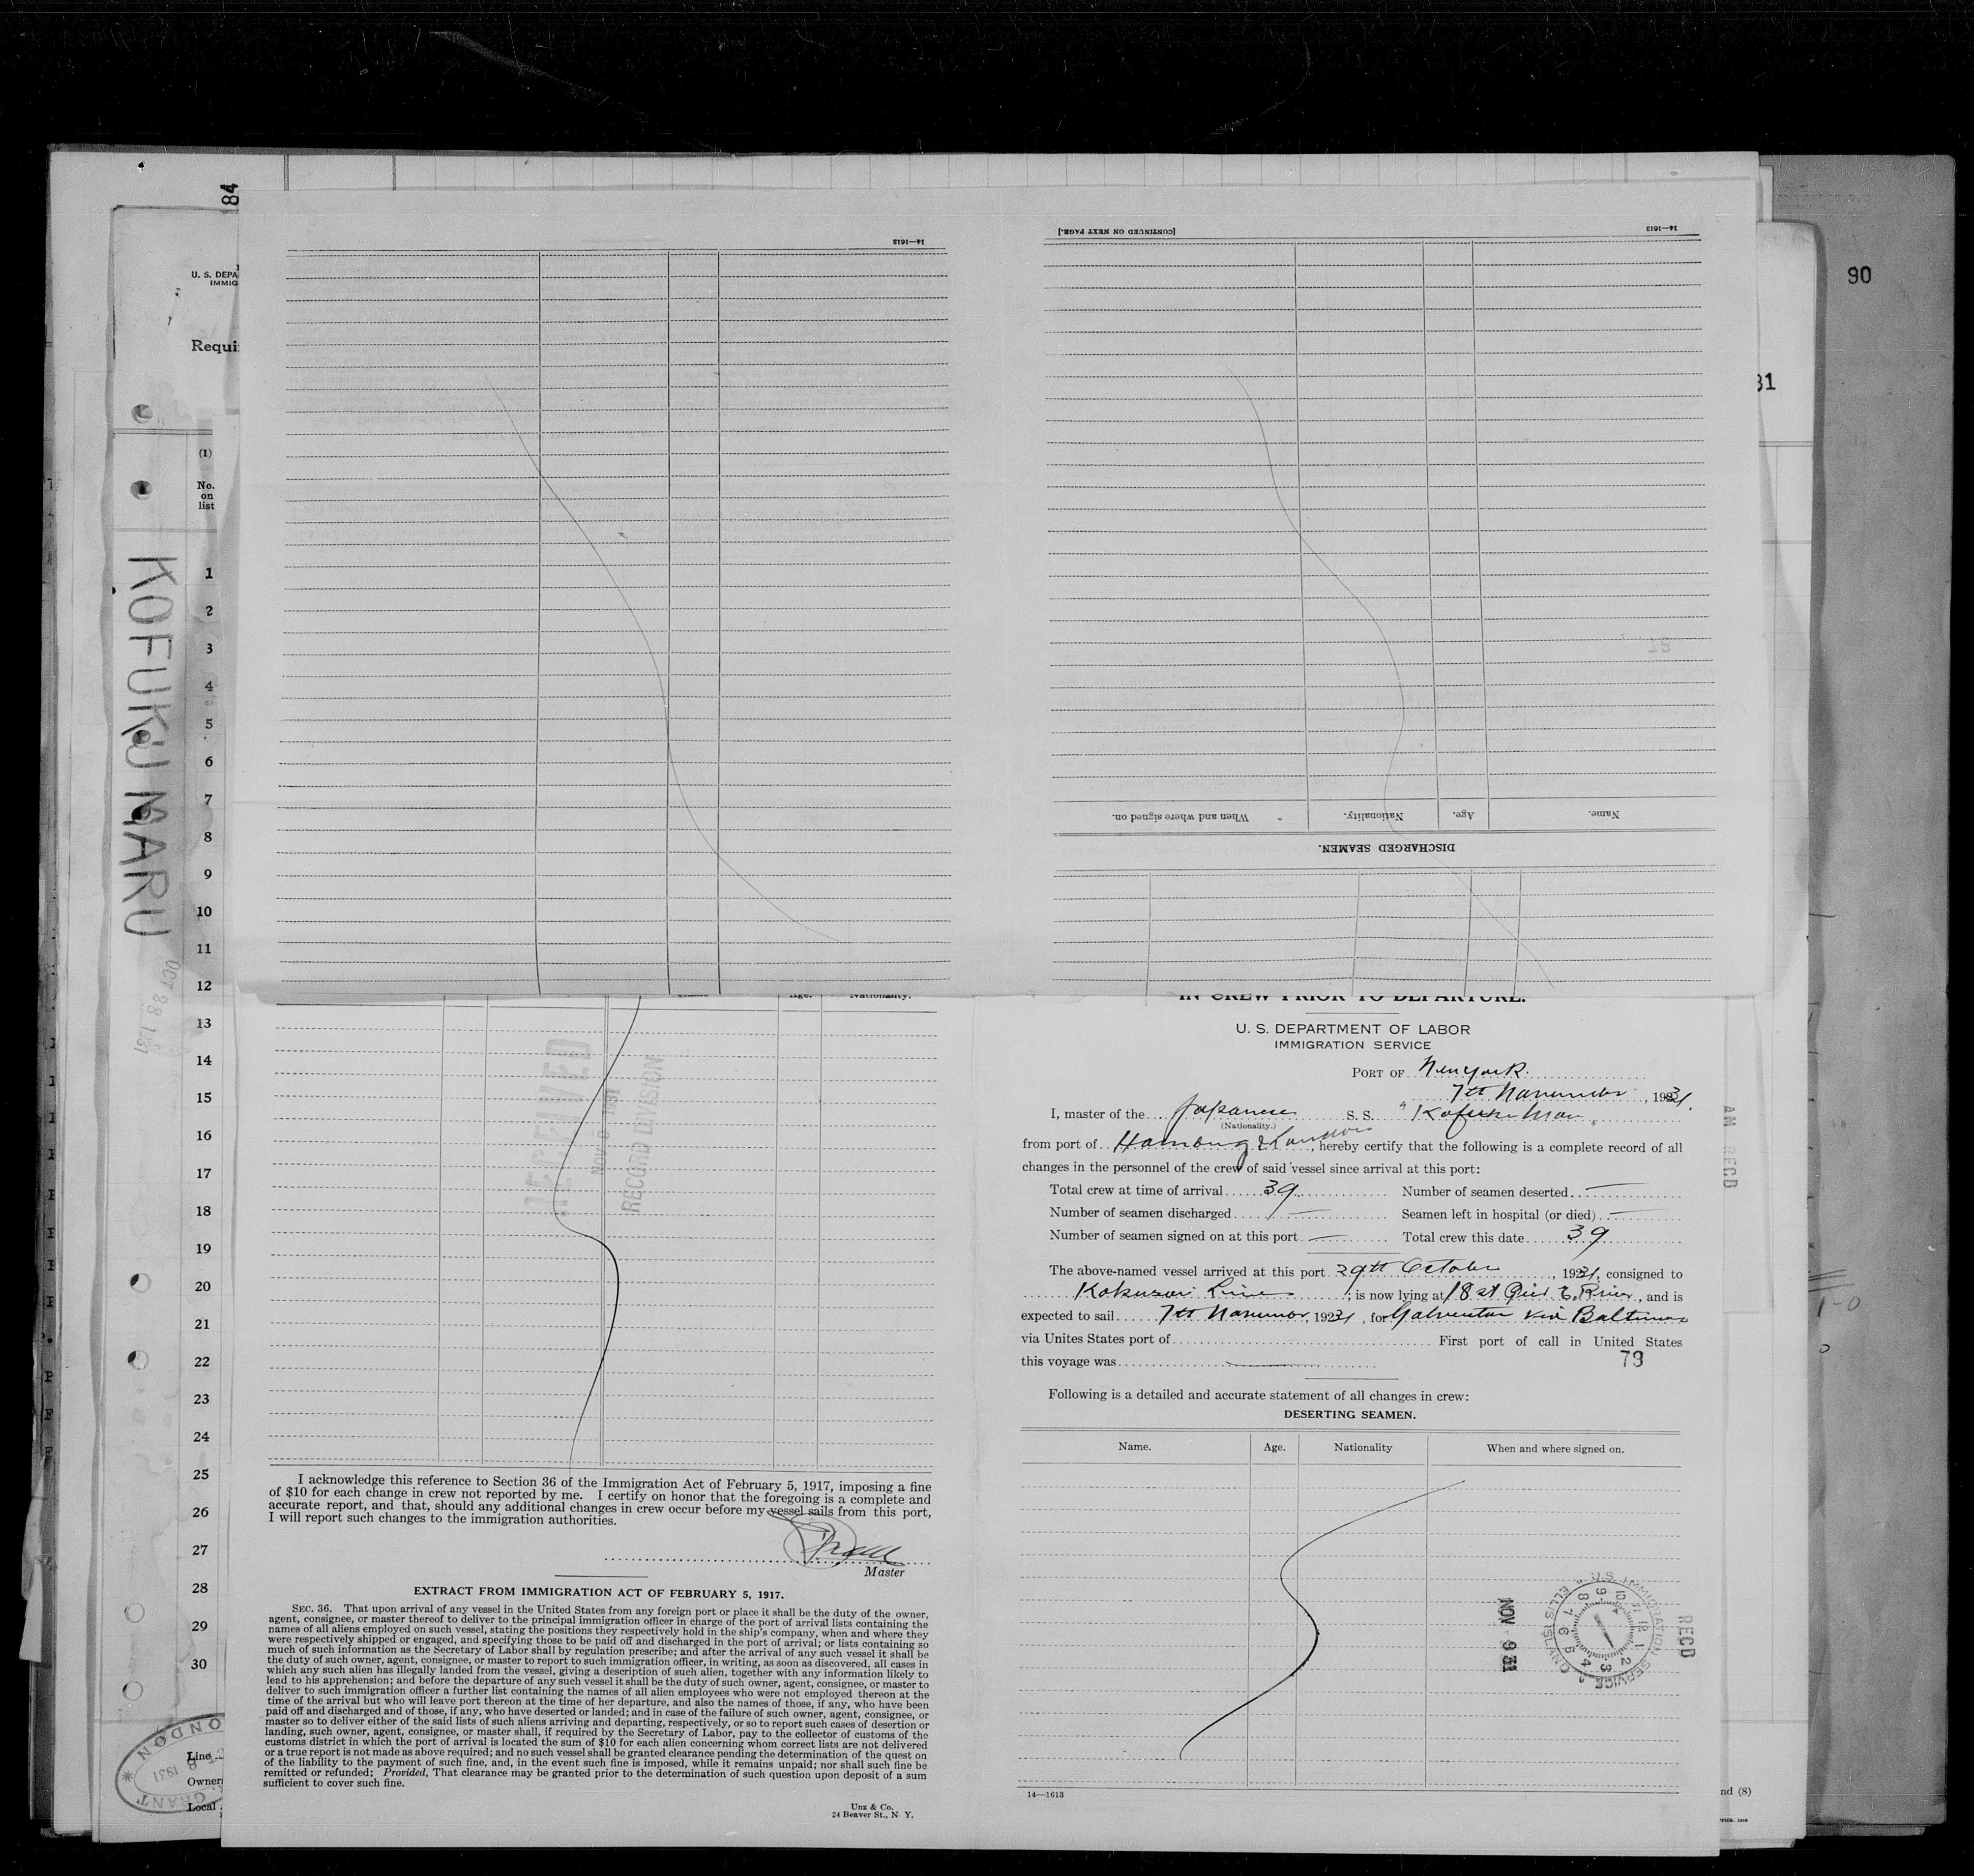 84
90
31
14—1613
[CONTINUED ON NEXT PAGE.]
14—1613
U. S. DEPA
IMMIG
Requi
(1)
No.
on
list
KOFUKU MARU
OCT 28 1931
1
2
3
4
5
6
7
8
9
10
11
12
13
14
15
16
17
18
19
20
21
22
23
24
25
26
27
28
29
30
Line
Owner
Local
LONDON
1931
GRANT
Name.
Age.
Nationality.
When and where signed on.
DISCHARGED SEAMEN.
Name
Age.
Nationality.
RECEIVED
NOV 9 1931
RECORD DIVISION
I acknowledge this reference to Section 36 of the Immigration Act of February 5, 1917, imposing a fine
of $10 for each change in crew not reported by me. I certify on honor that the foregoing is a complete and
accurate report, and that, should any additional changes in crew occur before my vessel sails from this port,
I will report such changes to the immigration authorities.
Master
EXTRACT FROM IMMIGRATION ACT OF FEBRUARY 5, 1917.
SEC. 36. That upon arrival of any vessel in the United States from any foreign port or place it shall be the duty of the owner,
agent, consignee, or master thereof to deliver to the principal immigration officer in charge of the port of arrival lists containing the
names of all aliens employed on such vessel, stating the positions they respectively hold in the ship's company, when and where they
were respectively shipped or engaged, and specifying those to be paid off and discharged in the port of arrival; or lists containing so
much of such information as the Secretary of Labor shall by regulation prescribe; and after the arrival of any such vessel it shall be
the duty of such owner, agent, consignee, or master to report to such immigration officer, in writing, as soon as discovered, all cases in
which any such alien has illegally landed from the vessel, giving a description of such alien, together with any information likely to
lead to his apprehension; and before the departure of any such vessel it shall be the duty of such owner, agent, consignee, or master to
deliver to such immigration officer a further list containing the names of all alien employees who were not employed thereon at the
time of the arrival but who will leave port thereon at the time of her departure, and also the names of those, if any, who have been
paid off and discharged and of those, if any, who have deserted or landed; and in case of the failure of such owner, agent, consignee, or
master so to deliver either of the said lists of such aliens arriving and departing, respectively, or so to report such cases of desertion or
landing, such owner, agent, consignee, or master shall, if required by the Secretary of Labor, pay to the collector of customs of the
customs district in which the port of arrival is located the sum of $10 for each alien concerning whom correct lists are not delivered
or a true report is not made as above required; and no such vessel shall be granted clearance pending the determination of the quest on
of the liability to the payment of such fine, and, in the event such fine is imposed, while it remains unpaid; nor shall such fine be
remitted or refunded; Provided, That clearance may be granted prior to the determination of such question upon deposit of a sum
sufficient to cover such fine.
Unz & Co.
24 Beaver St., N. Y.
IN CREW PRIOR TO DEPARTURE.
U. S. DEPARTMENT OF LABOR
IMMIGRATION SERVICE
PORT OF New York.
7th November, 1931.
I, master of the Japanese S. S. "Kofuku Maru"
(Nationality.)
from port of Hamburg & London, hereby certify that the following is a complete record of all
changes in the personnel of the crew of said vessel since arrival at this port:
Total crew at time of arrival 39 Number of seamen deserted —
Number of seamen discharged — Seamen left in hospital (or died) —
Number of seamen signed on at this port — Total crew this date 39
The above-named vessel arrived at this port 29th October, 1931, consigned to
Kokusai Line, is now lying at 18 st Pier E. River, and is
expected to sail 7th November, 1931, for Galveston via Baltimore
via Unites States port of First port of call in United States
this voyage was —
79
Following is a detailed and accurate statement of all changes in crew:
DESERTING SEAMEN.
Name. Age. Nationality When and where signed on.
AM RECD
NOV 9 31
U.S. IMMIGRATION SERVICE ELLIS ISLAND
RECD
14—1613
nd (8)